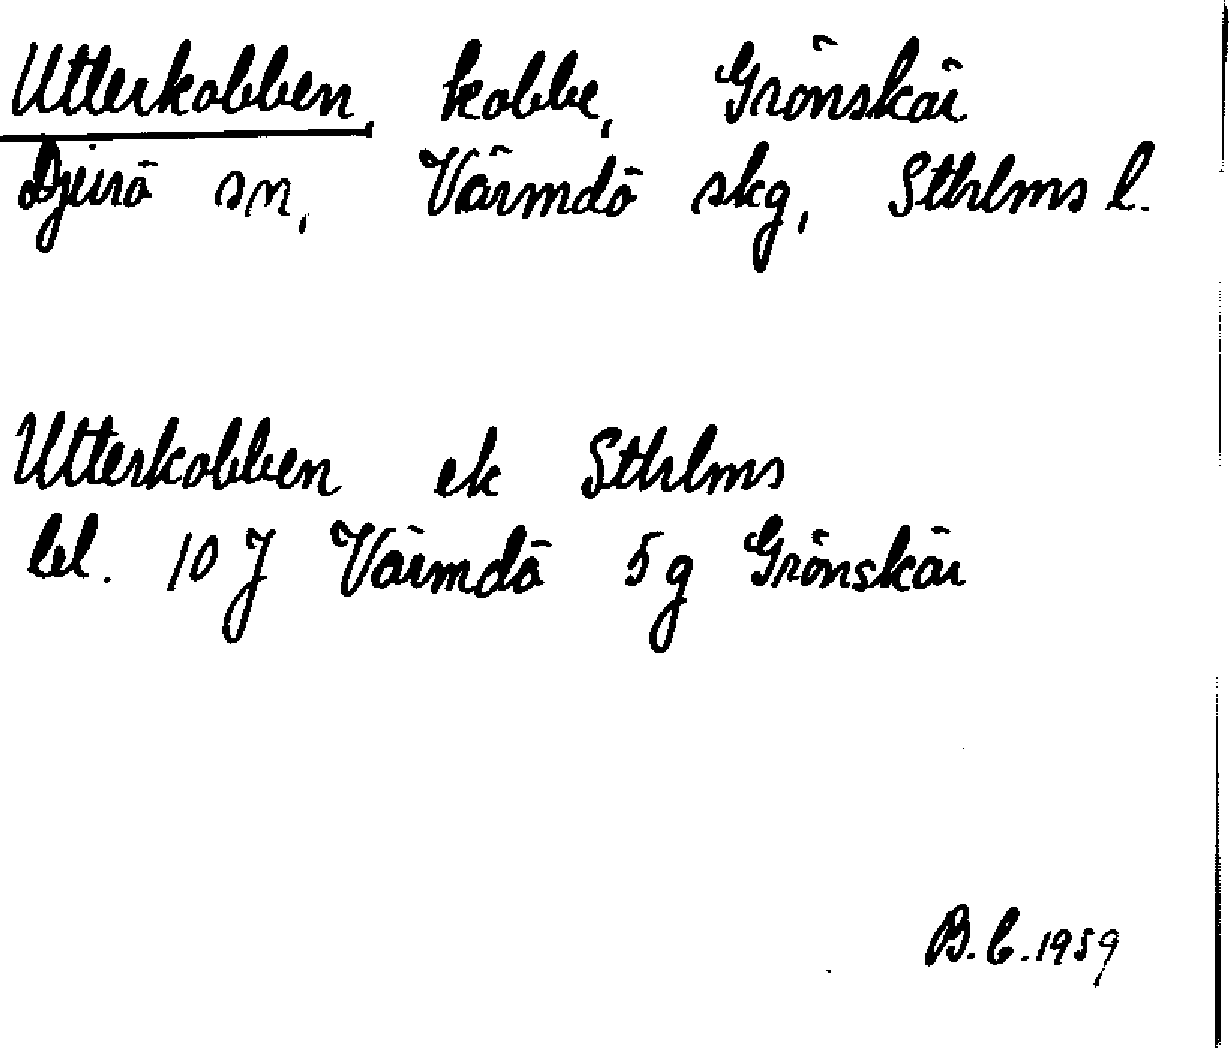 Utterkobben, kobbe, Grönskär
Djurö sn, Värmdö skg, Sthlms l.
Utterkobben ek Sthlms
bl. 10 J Värmdö 5 g Grönskär
B. C. 1959